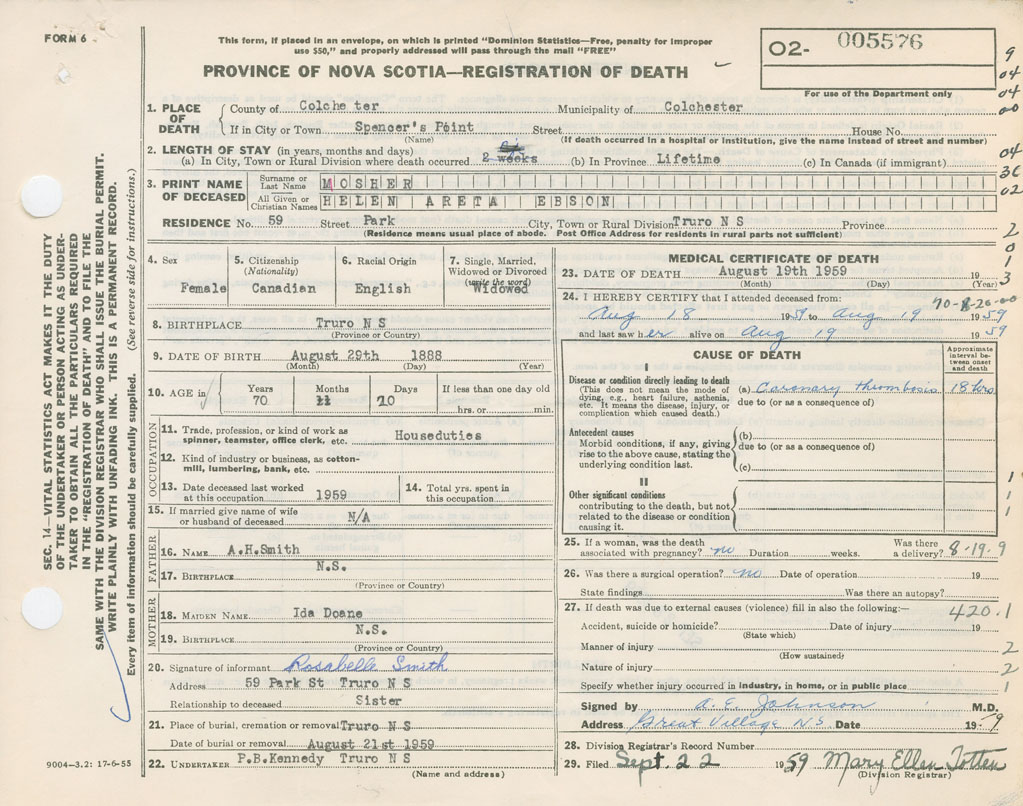 FORM 6
This form, if placed in an envelope, on which is printed "Dominion Statistics—Free, penalty for improper
use $50," and properly addressed will pass through the mail "FREE"
PROVINCE OF NOVA SCOTIA—REGISTRATION OF DEATH
O2- 005576
For use of the Department only
9
04
04
00
04
3C
02
2
0
1
3
1. PLACE OF DEATH County of Colche ter Municipality of Colchester
If in City or Town Spencer's Point Street House No.
(Name) (If death occurred in a hospital or institution, give the name instead of street and number)
2. LENGTH OF STAY (in years, months and days)
(a) In City, Town or Rural Division where death occurred 2 weeks (b) In Province Lifetime (c) In Canada (if immigrant)
3. PRINT NAME OF DECEASED
Surname or Last Name MOSHER
All Given or Christian Names HELEN ARETA EBSON
RESIDENCE No. 59 Street Park City, Town or Rural Division Truro N S Province
(Residence means usual place of abode. Post Office Address for residents in rural parts not sufficient)
4. Sex
Female
5. Citizenship
(Nationality)
Canadian
6. Racial Origin
English
7. Single, Married,
Widowed or Divorced
(write the word)
Widowed
8. BIRTHPLACE Truro N S
(Province or Country)
9. DATE OF BIRTH August 29th 1888
(Month) (Day) (Year)
10. AGE in Years Months Days If less than one day old
70 11 20 hrs. or min.
OCCUPATION
11. Trade, profession, or kind of work as
spinner, teamster, office clerk, etc. Houseduties
12. Kind of industry or business, as cotton-
mill, lumbering, bank, etc.
13. Date deceased last worked
at this occupation 1959
14. Total yrs. spent in
this occupation
15. If married give name of wife
or husband of deceased N/A
FATHER
16. NAME A.H.Smith
N.S.
17. BIRTHPLACE
(Province or Country)
MOTHER
18. MAIDEN NAME Ida Doane
N.S.
19. BIRTHPLACE
(Province or Country)
20. Signature of informant Rosabelle Smith
Address 59 Park St Truro N S
Relationship to deceased Sister
21. Place of burial, cremation or removal Truro N S
Date of burial or removal August 21st 1959
22. UNDERTAKER P.B.Kennedy Truro N S
(Name and address)
MEDICAL CERTIFICATE OF DEATH
23. DATE OF DEATH August 19th 1959 19
(Month) (Day) (Year)
24. I HEREBY CERTIFY that I attended deceased from:
Aug 18 1959 to Aug 19 1959
and last saw her alive on Aug 19 1959
CAUSE OF DEATH
Approximate
interval be-
tween onset
and death
I
Disease or condition directly leading to death
(This does not mean the mode of
dying, e.g., heart failure, asthenia,
etc. It means the disease, injury, or
complication which caused death.)
(a) Coronary thrombosis 18 hrs
due to (or as a consequence of)
Antecedent causes
Morbid conditions, if any, giving
rise to the above cause, stating the
underlying condition last.
(b)
due to (or as a consequence of)
(c)
II
Other significant conditions
contributing to the death, but not
related to the disease or condition
causing it.
1
1
1
25. If a woman, was the death
associated with pregnancy? no Duration weeks. Was there
a delivery? 8-19-9
26. Was there a surgical operation? no Date of operation 19
State findings Was there an autopsy?
27. If death was due to external causes (violence) fill in also the following:— 420.1
Accident, suicide or homicide? Date of injury 19
(State which)
Manner of injury 2
(How sustained)
Nature of injury 2
Specify whether injury occurred in industry, in home, or in public place 1
Signed by A. E. Johnson M.D.
Address Great Village N.S. Date 19
28. Division Registrar's Record Number
29. Filed Sept. 22 1959 Mary Ellen Totten
(Division Registrar)
SEC. 14—VITAL STATISTICS ACT MAKES IT THE DUTY
OF THE UNDERTAKER OR PERSON ACTING AS UNDER-
TAKER TO OBTAIN ALL THE PARTICULARS REQUIRED
IN THE "REGISTRATION OF DEATH" AND TO FILE THE
SAME WITH THE DIVISION REGISTRAR WHO SHALL ISSUE THE BURIAL PERMIT.
WRITE PLAINLY WITH UNFADING INK. THIS IS A PERMANENT RECORD.
Every item of information should be carefully supplied. (See reverse side for instructions.)
9004-3.2: 17-6-55